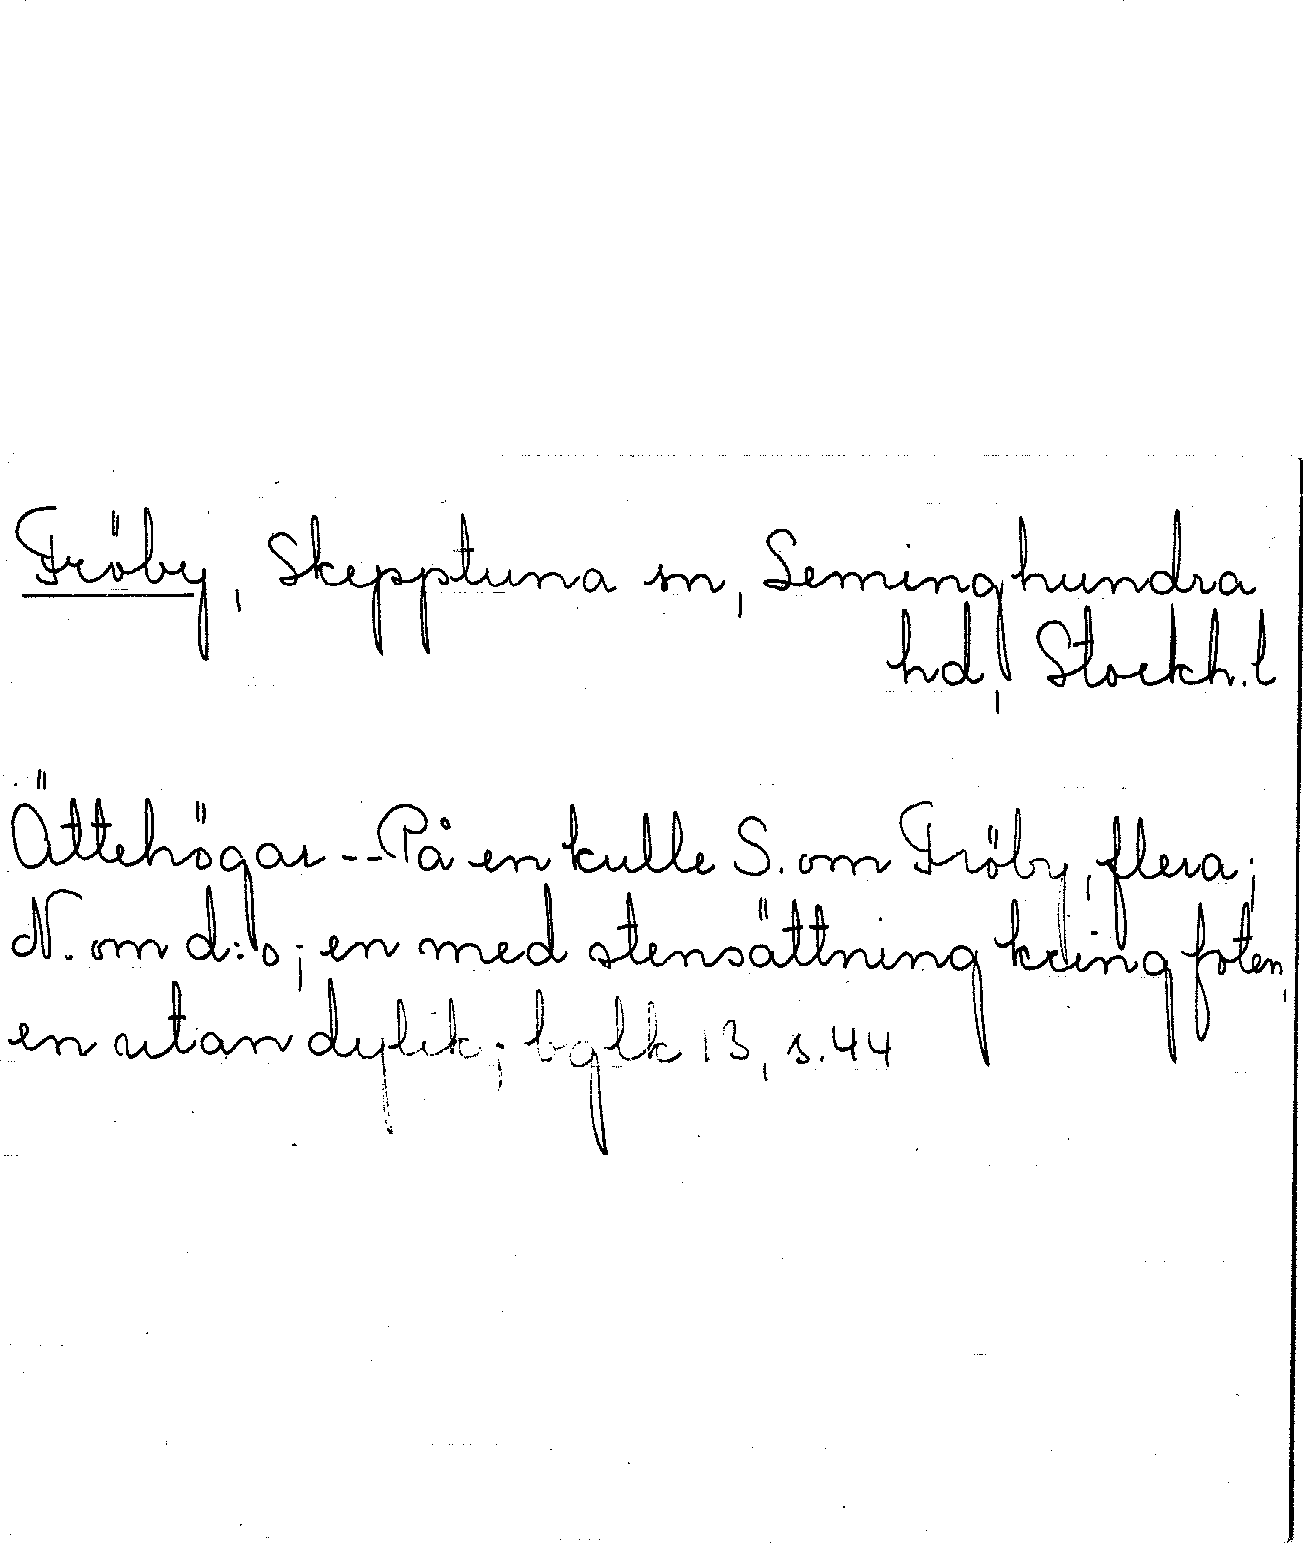 Fröby, Skepptuna sn, Seminghundra
hd, Stockh.l
Ättehögar -- På en kulle S. om Fröby, flera;
N. om d:o; en med stensättning kring foten,
en utan dylik; bglk 13, s. 44